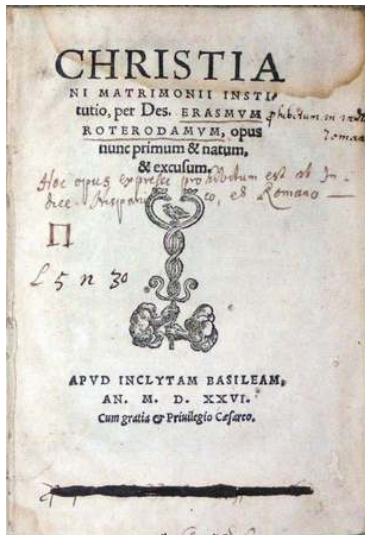 CHRISTIA
NI MATRIMONII INSTI-
tutio, per Des. ERASMVM
ROTERODAMVM, opus
nunc primum & natum,
& excusum.
Hoc opus expresse prohibitum est ab In-
dice Hispan co, et Romano
Π
L 5 n 30
APVD INCLYTAM BASILEAM,
AN. M. D. XXVI.
Cum gratia & Priuilegio Cæsareo.